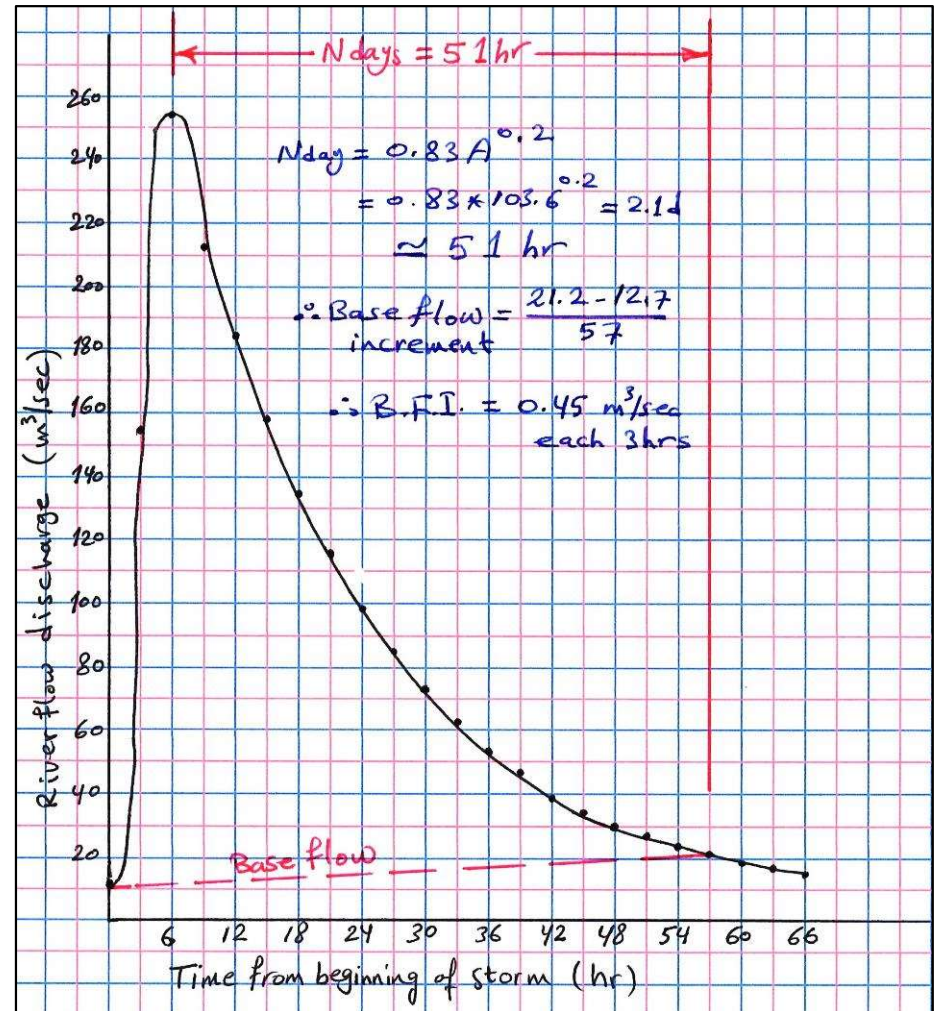 N days = 51 hr
260
240
220
200
180
160
140
120
100
80
60
40
20
River flow discharge (m³/sec)
Nday = 0.83 A^0.2
= 0.83 * 103.6^0.2 = 2.1d
≃ 51 hr
∴ Base flow increment = 21.2 - 12.7 / 57
∴ B.F.I. = 0.45 m³/sec
each 3hrs
Base flow
6 12 18 24 30 36 42 48 54 60 66
Time from beginning of storm (hr)